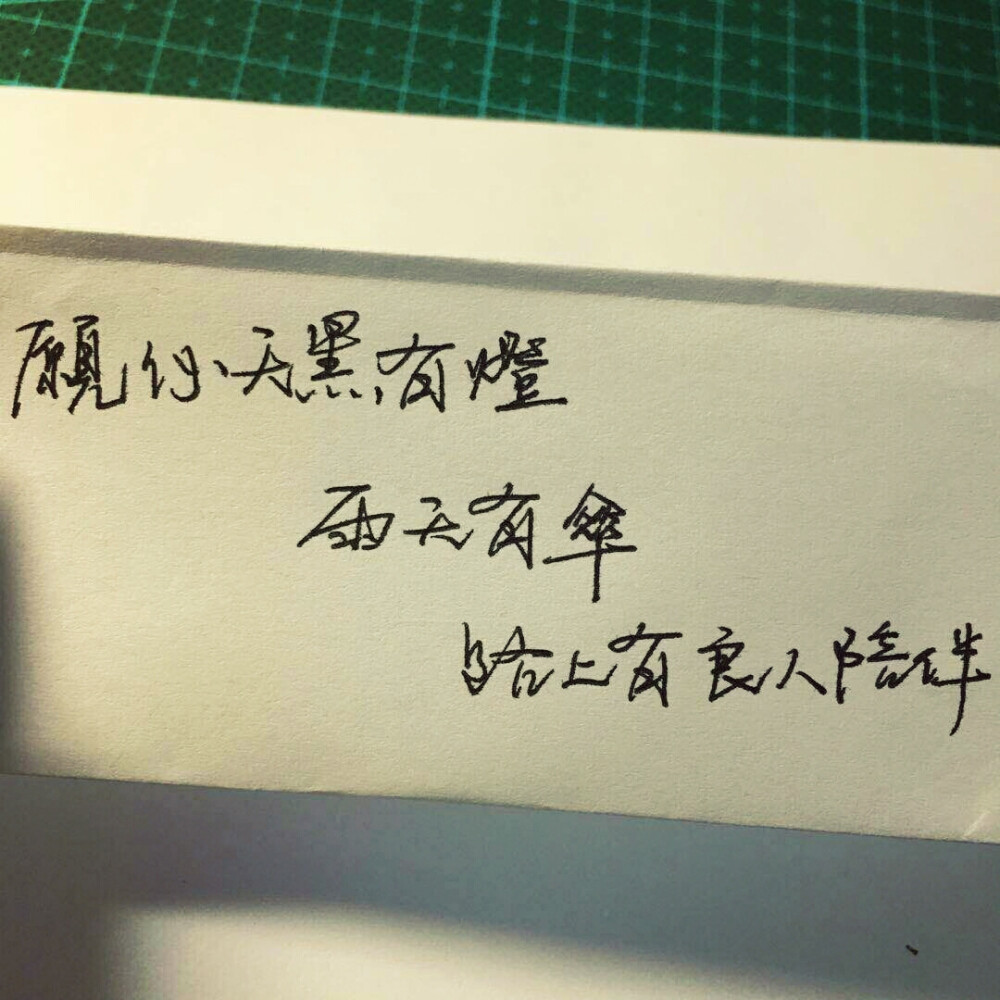 願你天黑有燈
雨天有傘
路上有良人陪伴